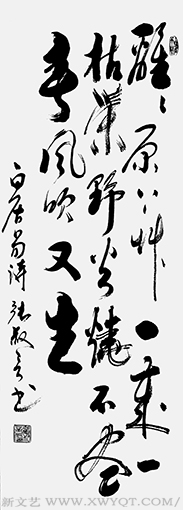 離〻原上艸一歲一
枯榮野火燒不盡
春風吹又生
白居易詩 書
新文艺 WWW.XWYQT.COM/